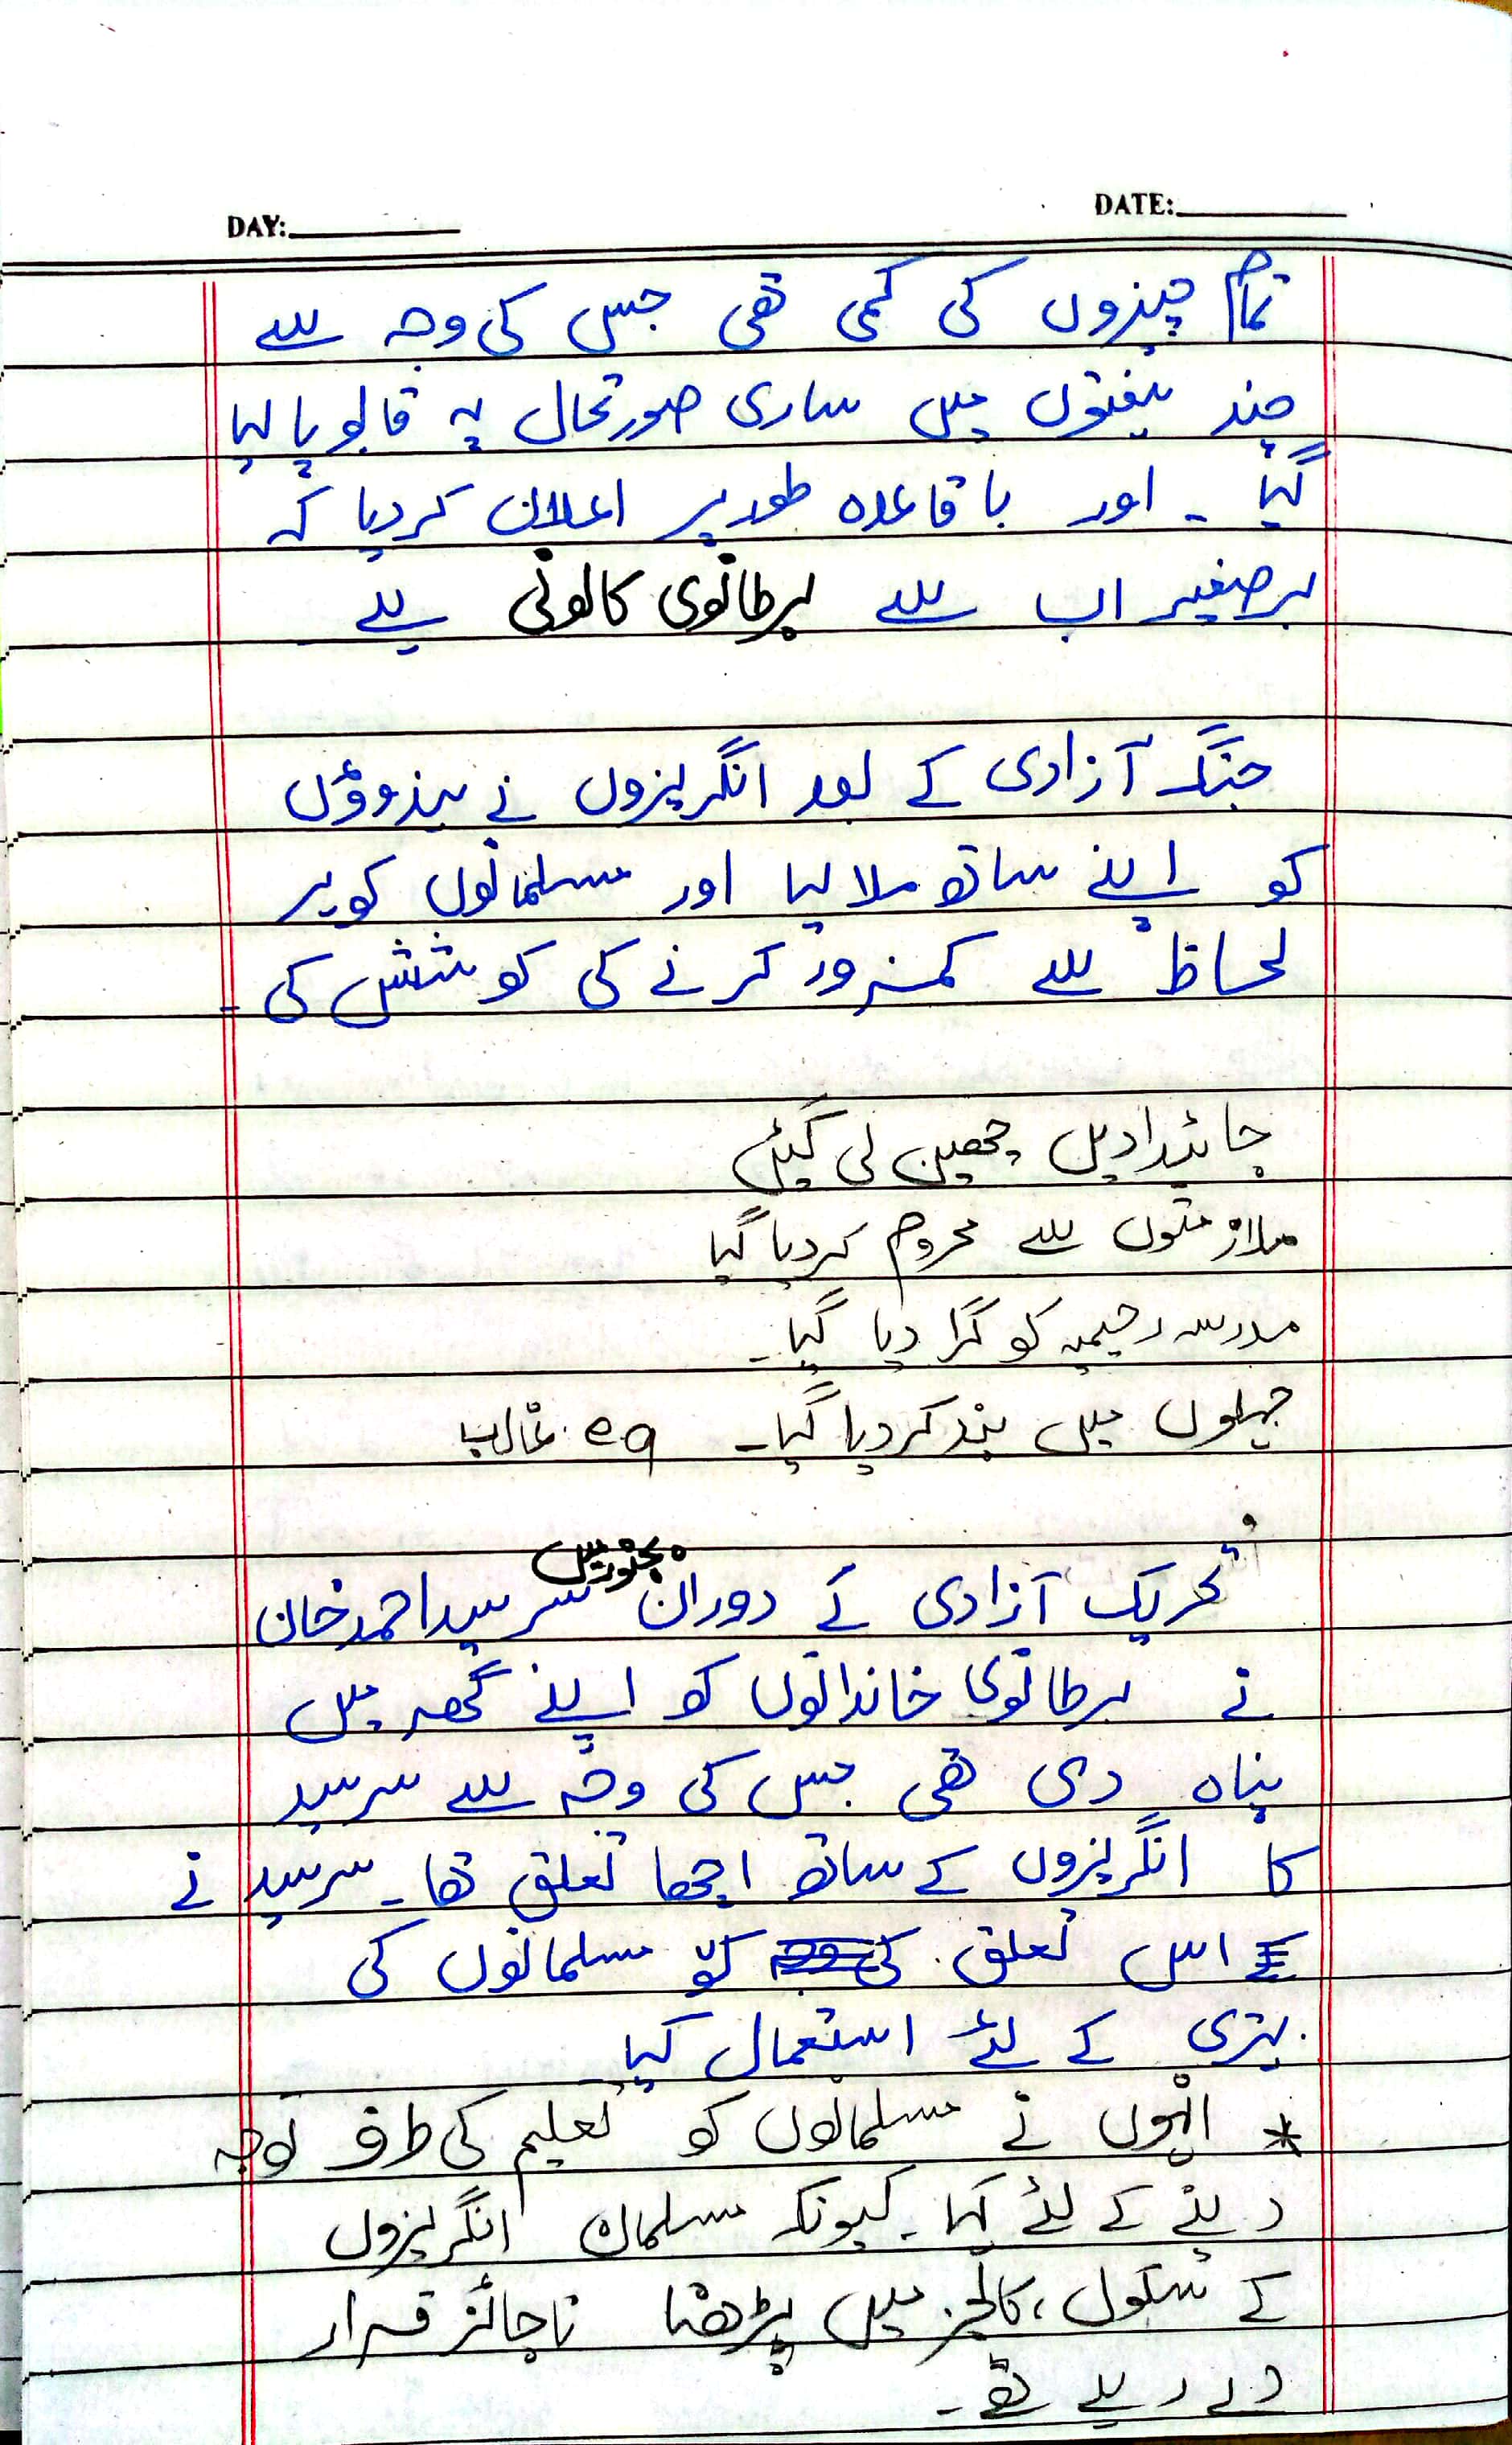 DAY:
DATE:
تمام چیزوں کی کمی تھی جس کی وجہ سے
چند ہفتوں میں ساری صورتحال پہ قابو پا لیا
گیا ۔ اور باقاعدہ طور پر اعلان کر دیا کہ
برصغیر اب سے برطانوی کالونی ہے
جنگ آزادی کے بعد انگریزوں نے ہندوؤں
کو اپنے ساتھ ملا لیا اور مسلمانوں کو ہر
لحاظ سے کمزور کرنے کی کوشش کی ۔
جائیدادیں چھین لی گیئں
ملازمتوں سے محروم کر دیا گیا
مدرسہ رحیمیہ کو گرا دیا گیا ۔
جیلوں میں بند کر دیا گیا ۔ eg. غالب
بجنور میں
تحریک آزادی کے دوران سر سید احمد خان
نے برطانوی خاندانوں کو اپنے گھر میں
پناہ دی تھی جس کی وجہ سے سر سید
کا انگریزوں کے ساتھ اچھا تعلق تھا ۔ سر سید نے
اس تعلق کو مسلمانوں کی
بہتری کے لئے استعمال کیا
* انہوں نے مسلمانوں کو تعلیم کی طرف توجہ
دینے کے لئے کہا ۔ کیونکہ مسلمان انگریزوں
کے سکول ، کالجز میں پڑھنا ناجائز قرار
دے رہے تھے ۔